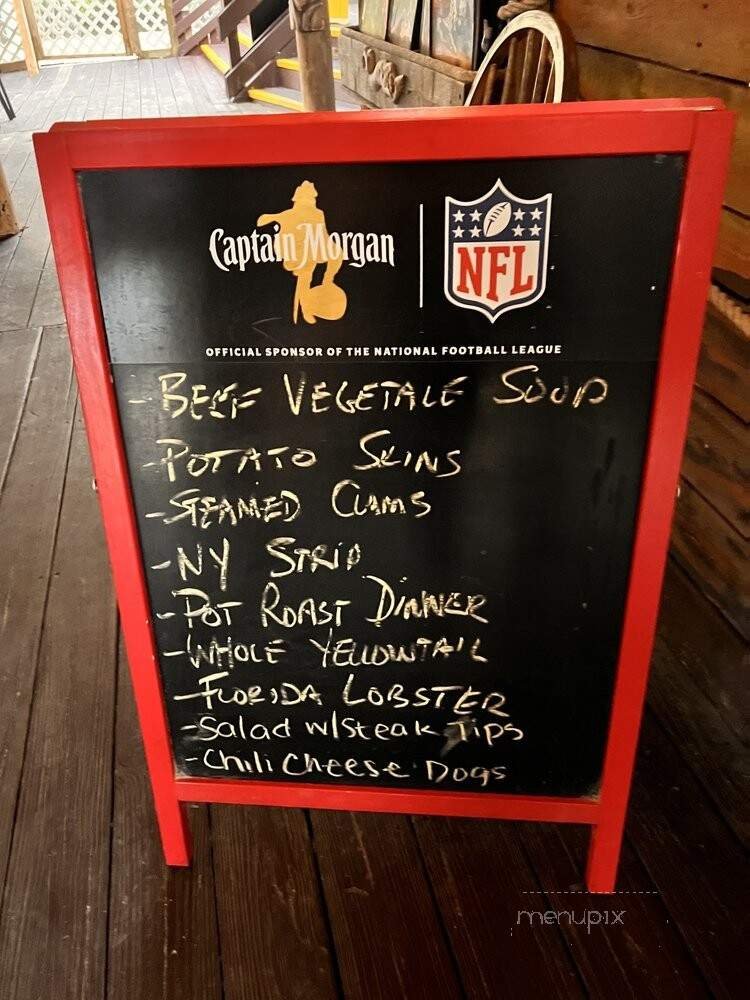 Captain Morgan
NFL
OFFICIAL SPONSOR OF THE NATIONAL FOOTBALL LEAGUE
- BEEF VEGETALE SOUP
- POTATO SKINS
- STEAMED CLAMS
- NY STRIP
- POT ROAST DINNER
- WHOLE YELLOWTAIL
- FLORIDA LOBSTER
- Salad w/steak Tips
- Chili Cheese Dogs
menupix